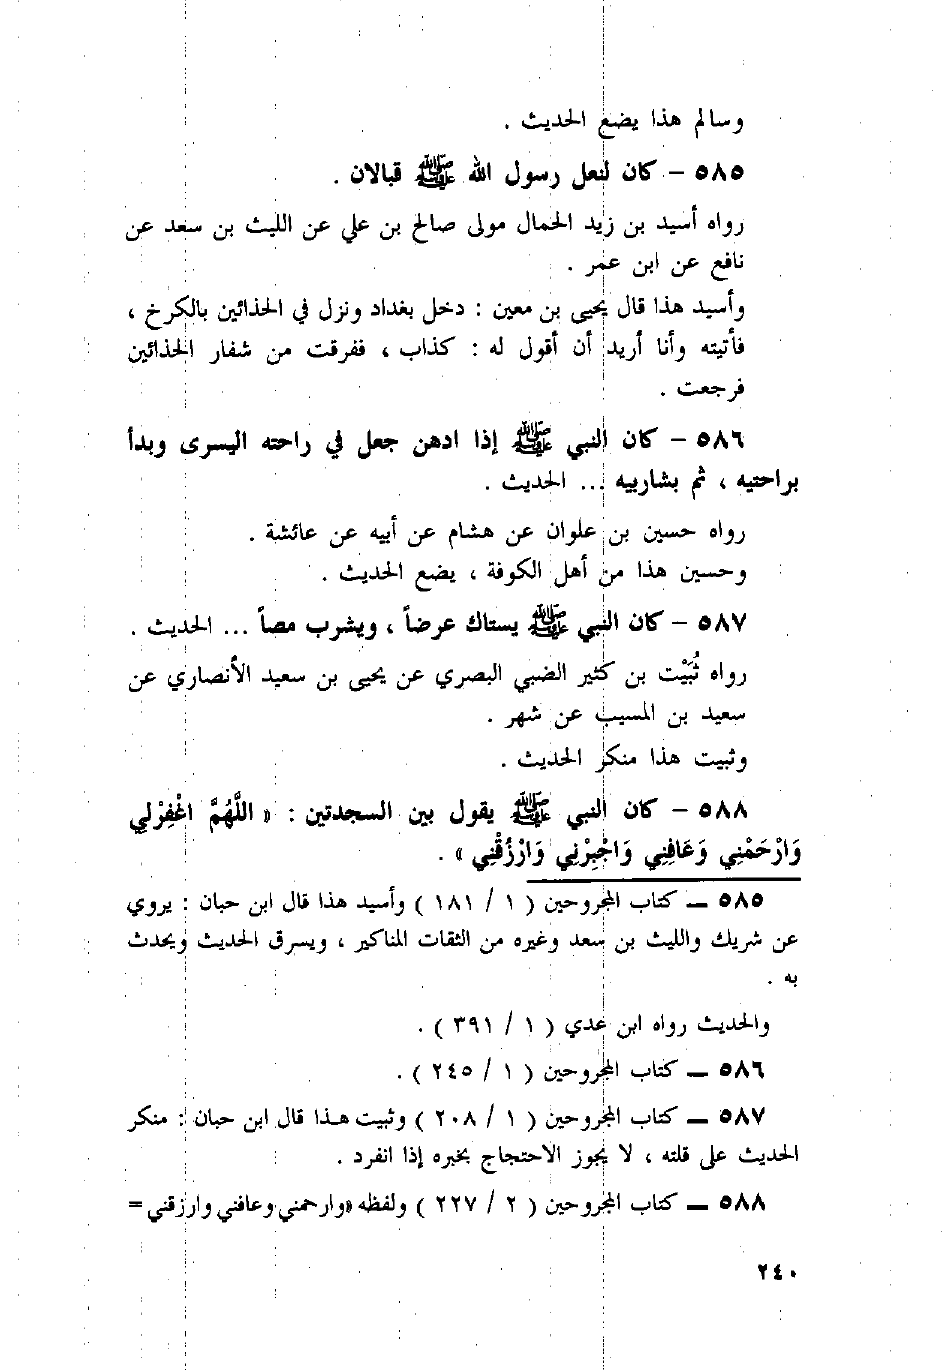 وسالم هذا يضع الحديث .
٥٨٥ - كان لنعل رسول الله ﷺ قبالان .
رواه أسيد بن زيد الحمال مولى صالح بن علي عن الليث بن سعد عن
نافع عن ابن عمر .
وأسيد هذا قال يحيى بن معين : دخل بغداد ونزل في الحذائين بالكرخ ،
فأتيته وأنا أريد أن أقول له : كذاب ، ففرقت من شفار الحذائين
فرجعت .
٥٨٦ - كان النبي ﷺ إذا ادهن جعل في راحته اليسرى وبدأ
براحتيه ، ثم بشاربيه ... الحديث .
رواه حسين بن علوان عن هشام عن أبيه عن عائشة .
وحسين هذا من أهل الكوفة ، يضع الحديث .
٥٨٧ - كان النبي ﷺ يستاك عرضاً ، ويشرب مصاً ... الحديث .
رواه ثُبَيْت بن كثير الضبي البصري عن يحيى بن سعيد الأنصاري عن
سعيد بن المسيب عن شهر .
وثبيت هذا منكر الحديث .
٥٨٨ - كان النبي ﷺ يقول بين السجدتين : « اللَّهُمَّ اغْفِرْلِي
وَارْحَمْنِي وَعَافِنِي وَاجْبِرْنِي وَارْزُقْنِي » .
٥٨٥ ــ كتاب المجروحين ( ١ / ١٨١ ) وأسيد هذا قال ابن حبان : يروي
عن شريك والليث بن سعد وغيره من الثقات المناكير ، ويسرق الحديث ويحدث
به .
والحديث رواه ابن عدي ( ١ / ٣٩١ ) .
٥٨٦ ــ كتاب المجروحين ( ١ / ٢٤٥ ) .
٥٨٧ ــ كتاب المجروحين ( ١ / ٢٠٨ ) وثبيت هـذا قال ابن حبان : منكر
الحديث على قلته ، لا يجوز الاحتجاج بخبره إذا انفرد .
٥٨٨ ــ كتاب المجروحين ( ٢ / ٢٢٧ ) ولفظه «وارحمني وعافني وارزقني =
٢٤٠